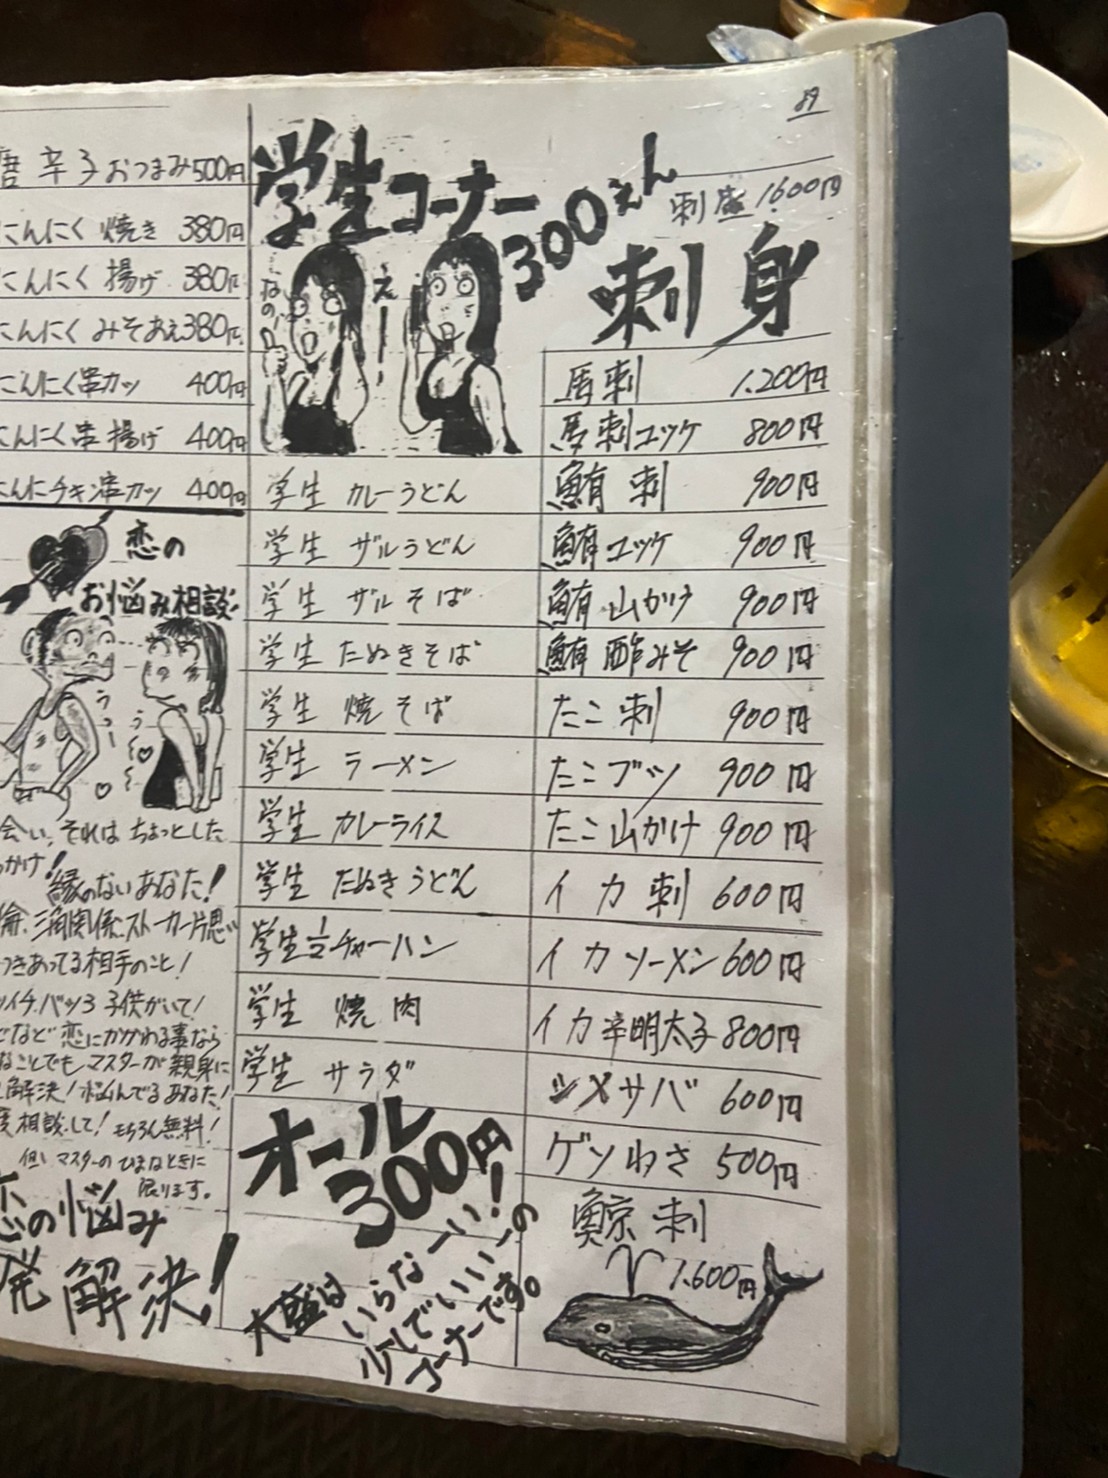 唐辛子おつまみ 500円
にんにく 焼き 380円
にんにく 揚げ 380円
にんにく みそあえ 380円
にんにく串カツ 400円
にんにく串揚げ 400円
にんにチキン串カツ 400円
恋の
お悩み相談
うっー
う〜
会い、それは ちょっとした
かけ!
縁のないあなた!
倫、三角関係、ストーカー、片思い
つきあってる相手のこと!
ツイチ、バツ3 子供がいて!
などなど 恋にかかわる事なら
なことでもマスターが親身に
解決! 悩んでるあなた!
度相談して! もちろん無料!
但し マスターの ひまなときに
限ります。
恋の悩み
発解決!
学生コーナー
300えん
なの!
えーー
学生 カレーうどん
学生 ザルうどん
学生 ザルそば
学生 たぬきそば
学生 焼そば
学生 ラーメン
学生 カレーライス
学生 たぬきうどん
学生½チャーハン
学生 焼肉
学生 サラダ
オール
300円!
大盛は
いらなーい!
少しでいいーの
コーナーです。
89
刺盛 1.600円
刺身
馬刺 1.200円
馬刺ユッケ 800円
鮪刺 900円
鮪ユッケ 900円
鮪山かけ 900円
鮪酢みそ 900円
たこ刺 900円
たこブツ 900円
たこ山かけ 900円
イカ刺 600円
イカソーメン 600円
イカ辛明太子 800円
シメサバ 600円
ゲソわさ 500円
鯨刺
1.600円